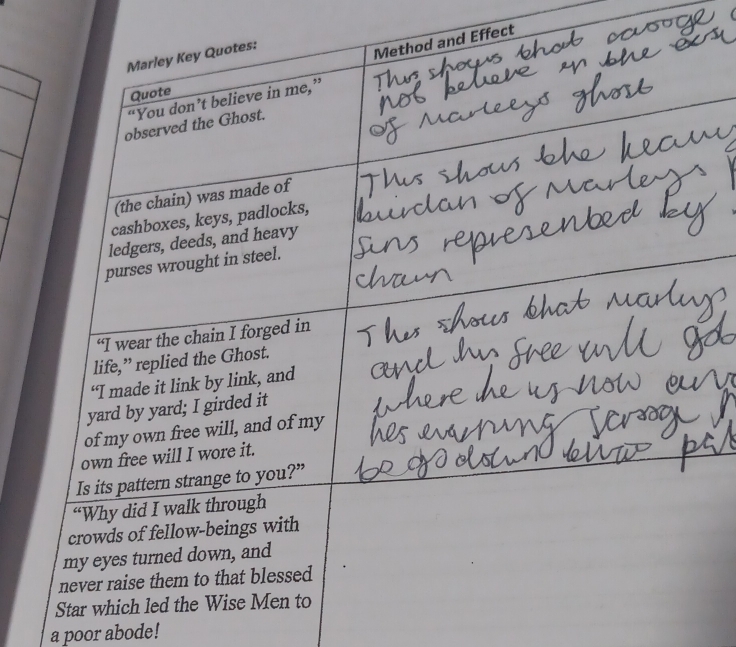 Marley Key Quotes:
Quote
Method and Effect
“You don’t believe in me,”
observed the Ghost.
This shows that
not believe in the
of Marleeys ghost
(the chain) was made of
cashboxes, keys, padlocks,
ledgers, deeds, and heavy
purses wrought in steel.
This shows the heavy
burdan of Marleys
Sins represented by
chain
“I wear the chain I forged in
life,” replied the Ghost.
“I made it link by link, and
yard by yard; I girded it
of my own free will, and of my
own free will I wore it.
Is its pattern strange to you?”
This shows that Marleys
and his free will got
where he is now
hes Scrooge
be go down
“Why did I walk through
crowds of fellow-beings with
my eyes turned down, and
never raise them to that blessed
Star which led the Wise Men to
a poor abode!